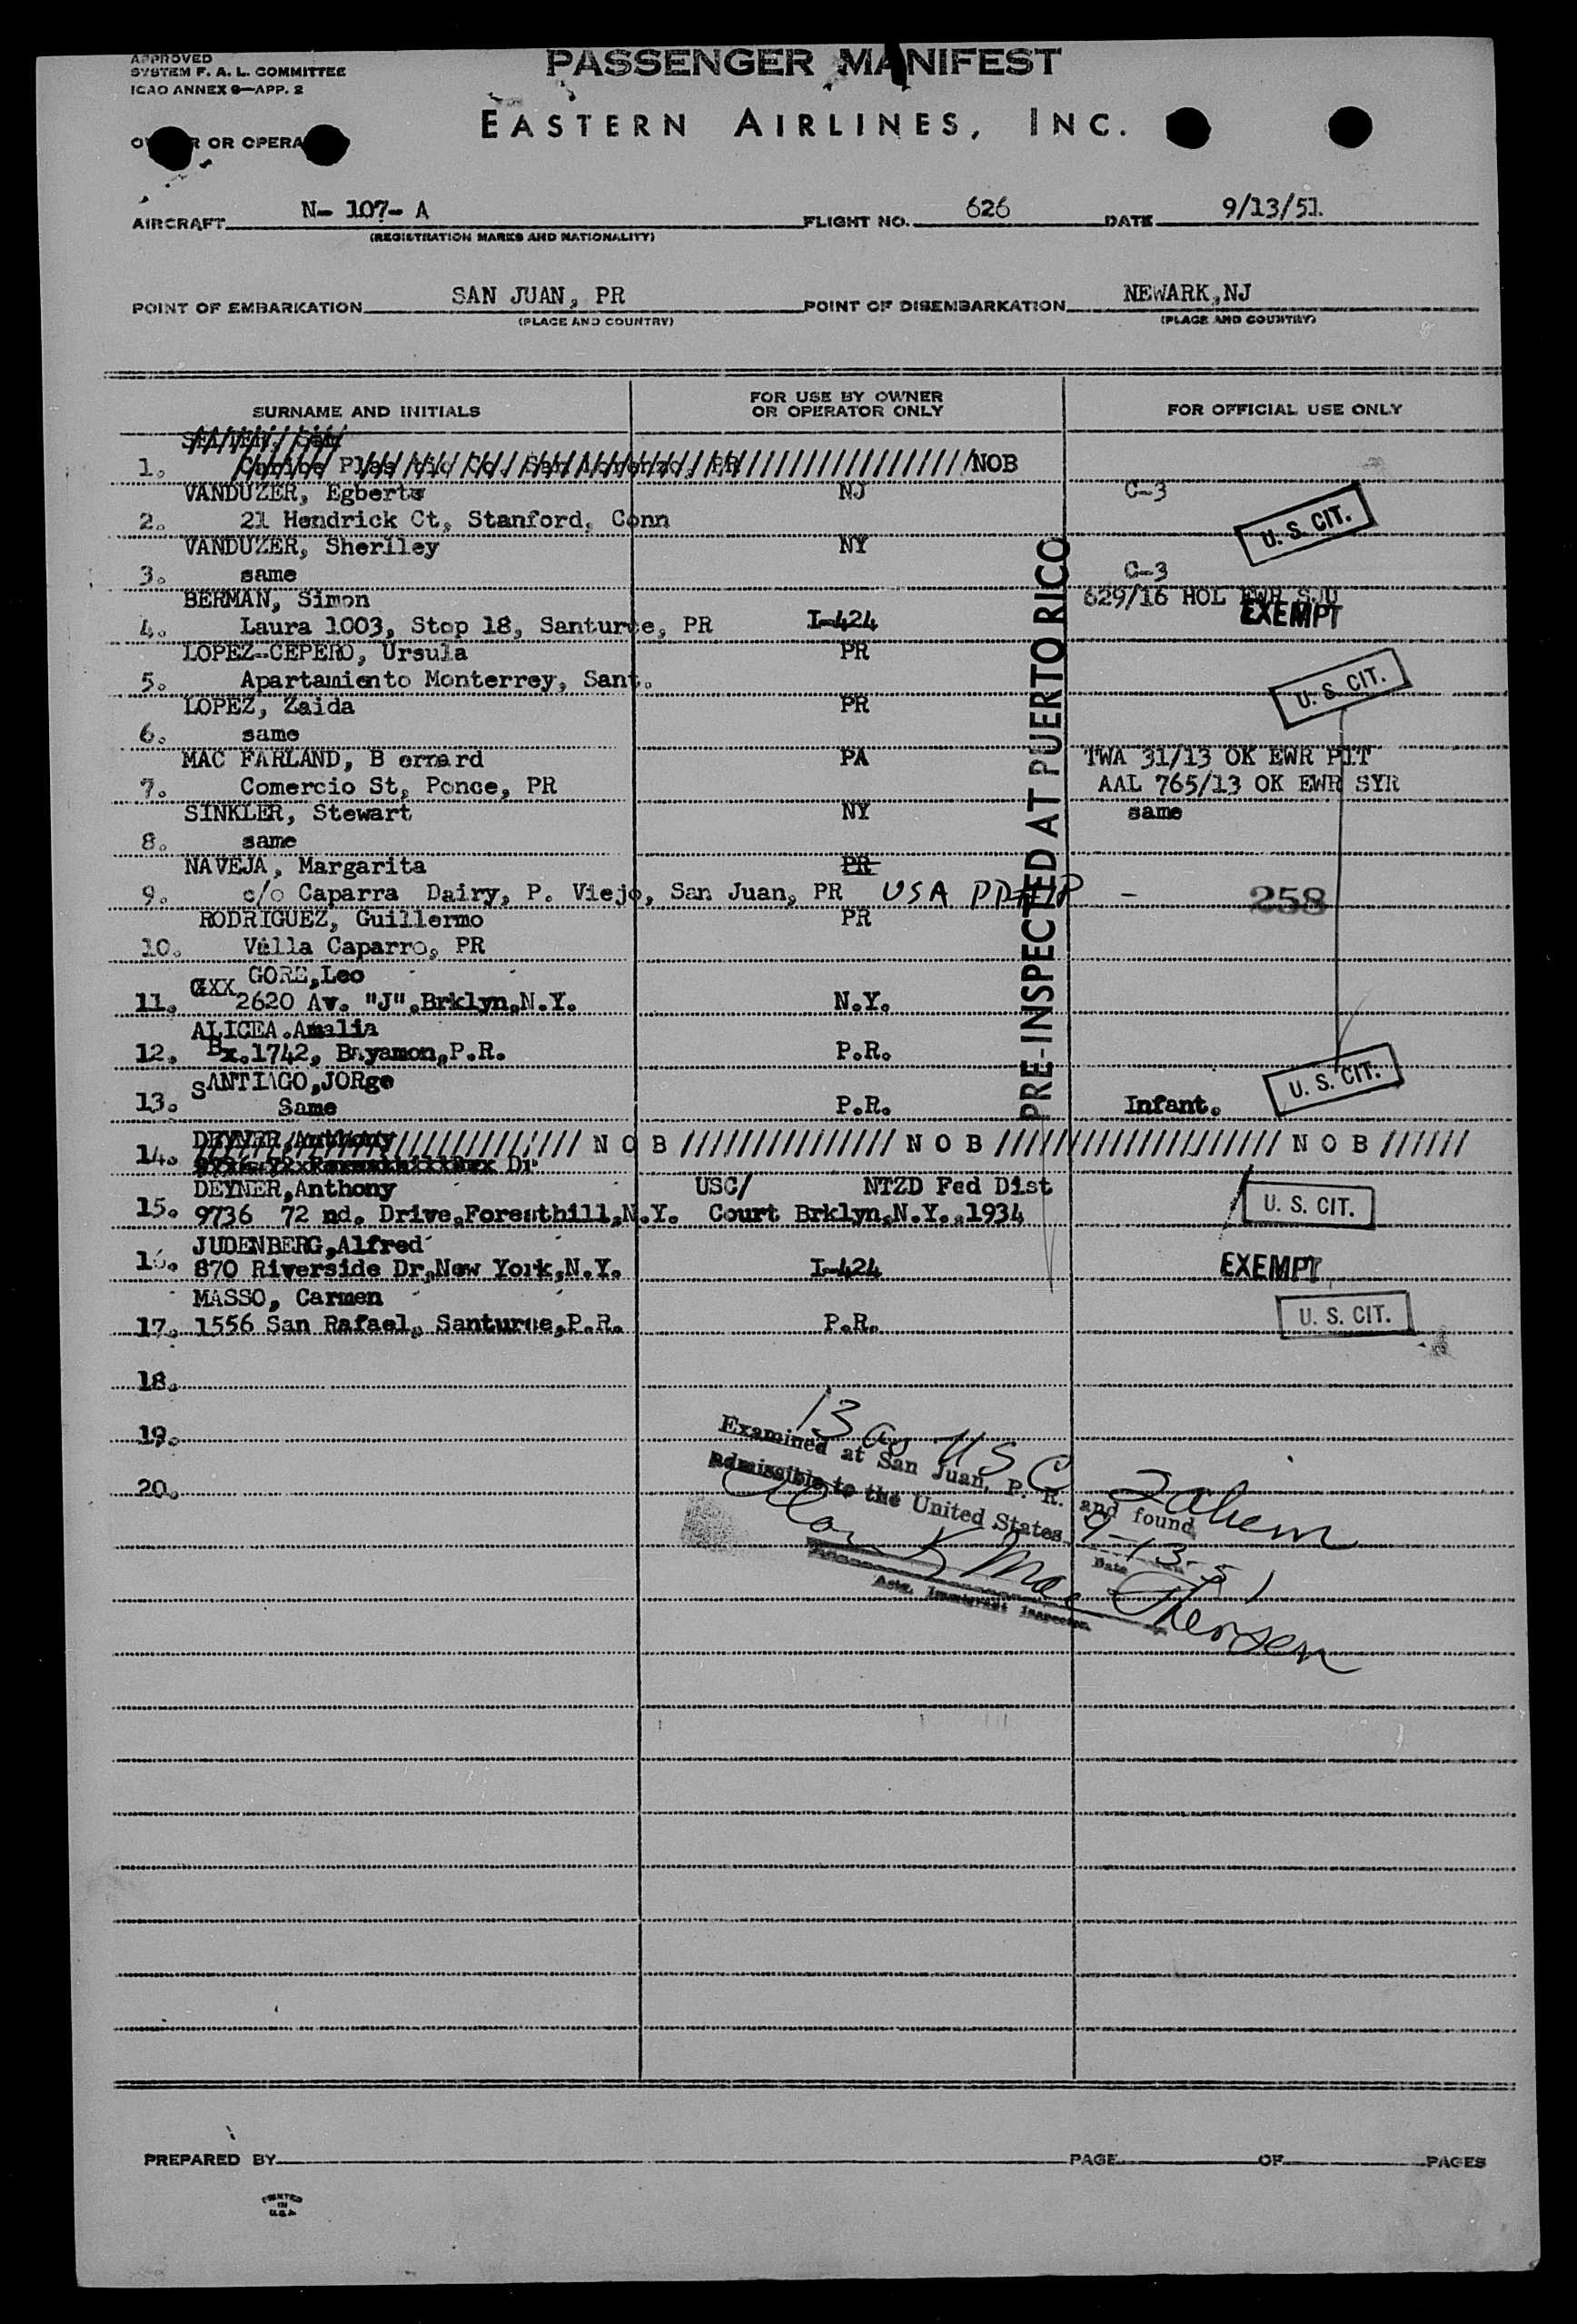 APPROVED
SYSTEM F. A. L. COMMITTEE
ICAO ANNEX 9—APP. 2
PASSENGER MANIFEST
EASTERN AIRLINES, INC.
OR OPERA
AIRCRAFT N- 107- A FLIGHT NO. 626 DATE 9/13/51.
(REGISTRATION MARKS AND NATIONALITY)
POINT OF EMBARKATION SAN JUAN, PR POINT OF DISEMBARKATION NEWARK,NJ
(PLACE AND COUNTRY) (PLACE AND COUNTRY)
SURNAME AND INITIALS FOR USE BY OWNER OR OPERATOR ONLY FOR OFFICIAL USE ONLY
1. NOB
VANDUZER, Egberts NJ C-3
2. 21 Hendrick Ct, Stanford, Conn U. S. CIT.
VANDUZER, Sherlley NY
3. same C-3
BERMAN, Simon 629/16 HOL EWR SJU
4. Laura 1003, Stop 18, Santurce, PR I-424 EXEMPT
LOPEZ-CEPERO, Ursula PR
5. Apartamiento Monterrey, Sant. U. S. CIT.
LOPEZ, Zaida PR
6. same
MAC FARLAND, B ernard PA TWA 31/13 OK EWR PIT
7. Comercio St, Ponce, PR AAL 765/13 OK EWR SYR
SINKLER, Stewart NY same
8. same
NAVEJA, Margarita PR
9. c/o Caparra Dairy, P. Viejo, San Juan, PR USA - 258
RODRIGUEZ, Guillermo PR
10. Villa Caparro, PR
GORE,Leo
11. 2620 Av. "J",Brklyn,N.Y. N.Y.
ALICEA.Amalia
12. Bx.1742, Bayamon,P.R. P.R.
SANTIAGO,JORge
13. Same P.R. Infant. U. S. CIT.
PRE-INSPECTED AT PUERTO RICO
14. DEYNER,Anthony N O B N O B N O B
DEYNER,Anthony USC/ NTZD Fed Dist
15. 9736 72 nd. Drive,Foresthill,N.Y. Court Brklyn,N.Y.,1934 U. S. CIT.
JUDENBERG,Alfred
16. 870 Riverside Dr,New York,N.Y. I-424 EXEMPT
MASSO, Carmen
17. 1556 San Rafael, Santurce,P.R. P.R. U. S. CIT.
18.
19.
20.
13 as USC
2 alien
Examined at San Juan, P. R. and found
admissible to the United States 9-13-51
Date
Actg. Immigrant Inspector
PREPARED BY PAGE OF PAGES
PRINTED
IN
U.S.A.